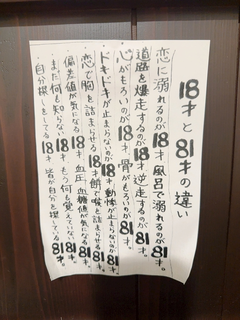 18才と81才の違い
恋に溺れるのが18才 風呂で溺れるのが81才。
道路を爆走するのが18才 逆走するのが81才。
心がもろいのが18才 骨がもろいのが81才。
ドキドキが止まらないのが18才 動悸が止まらないのが81才。
恋で胸を詰まらせる18才 餅で喉を詰まらせる81才。
偏差値が気になる18才 血圧・血糖値が気になる81才。
まだ何も知らない18才 もう何も覚えていない81才。
自分探しをしてる18才 皆が自分を探している81才。